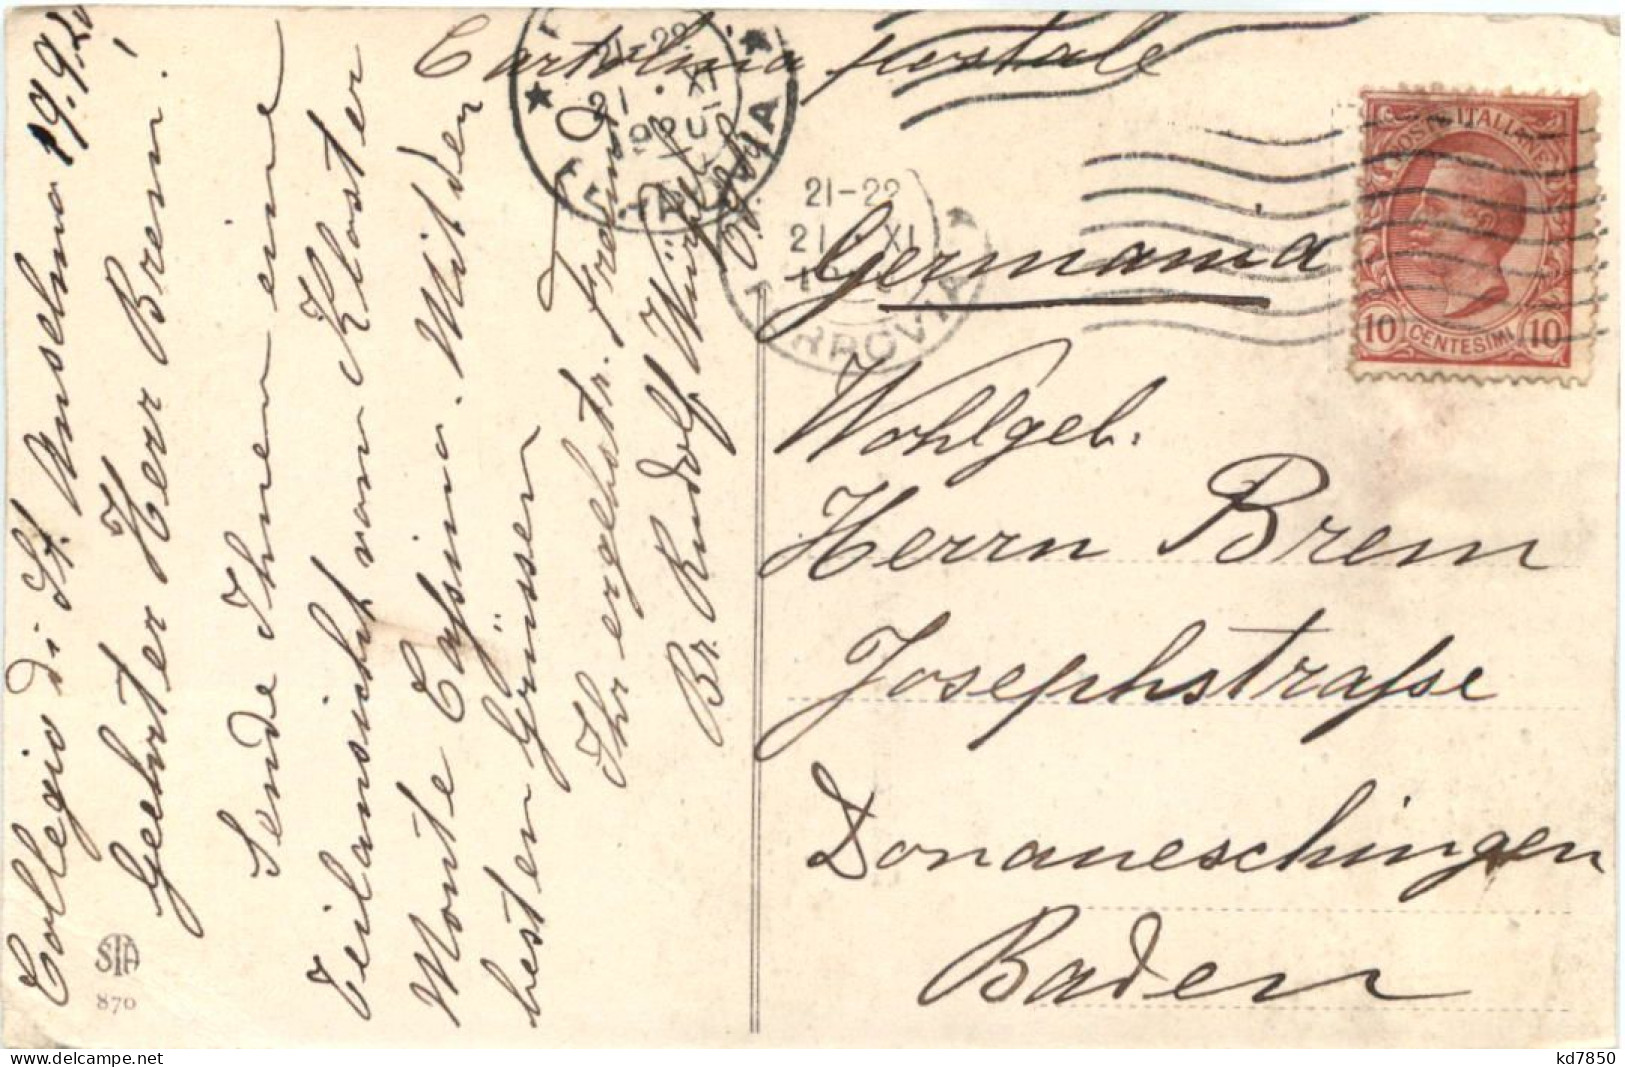 Collegio di St. Anselmo 19.9.
Geehrter Herr Brem!
Sende Ihnen eine
Teilansicht vom Kloster
Monte Cassino. Mit den
besten Grüssen
Ihr ergebstr. Freund
Br. Rudolf
STA
870
Cartolina postale
21-22
21 · XI
21-22
21 · XI
FERROVIA
POSTE ITALIANE
10 CENTESIMI 10
Germania
Wohlgeb.
Herrn Brem
Josephstraſse
Donaueschingen
Baden
kd7850